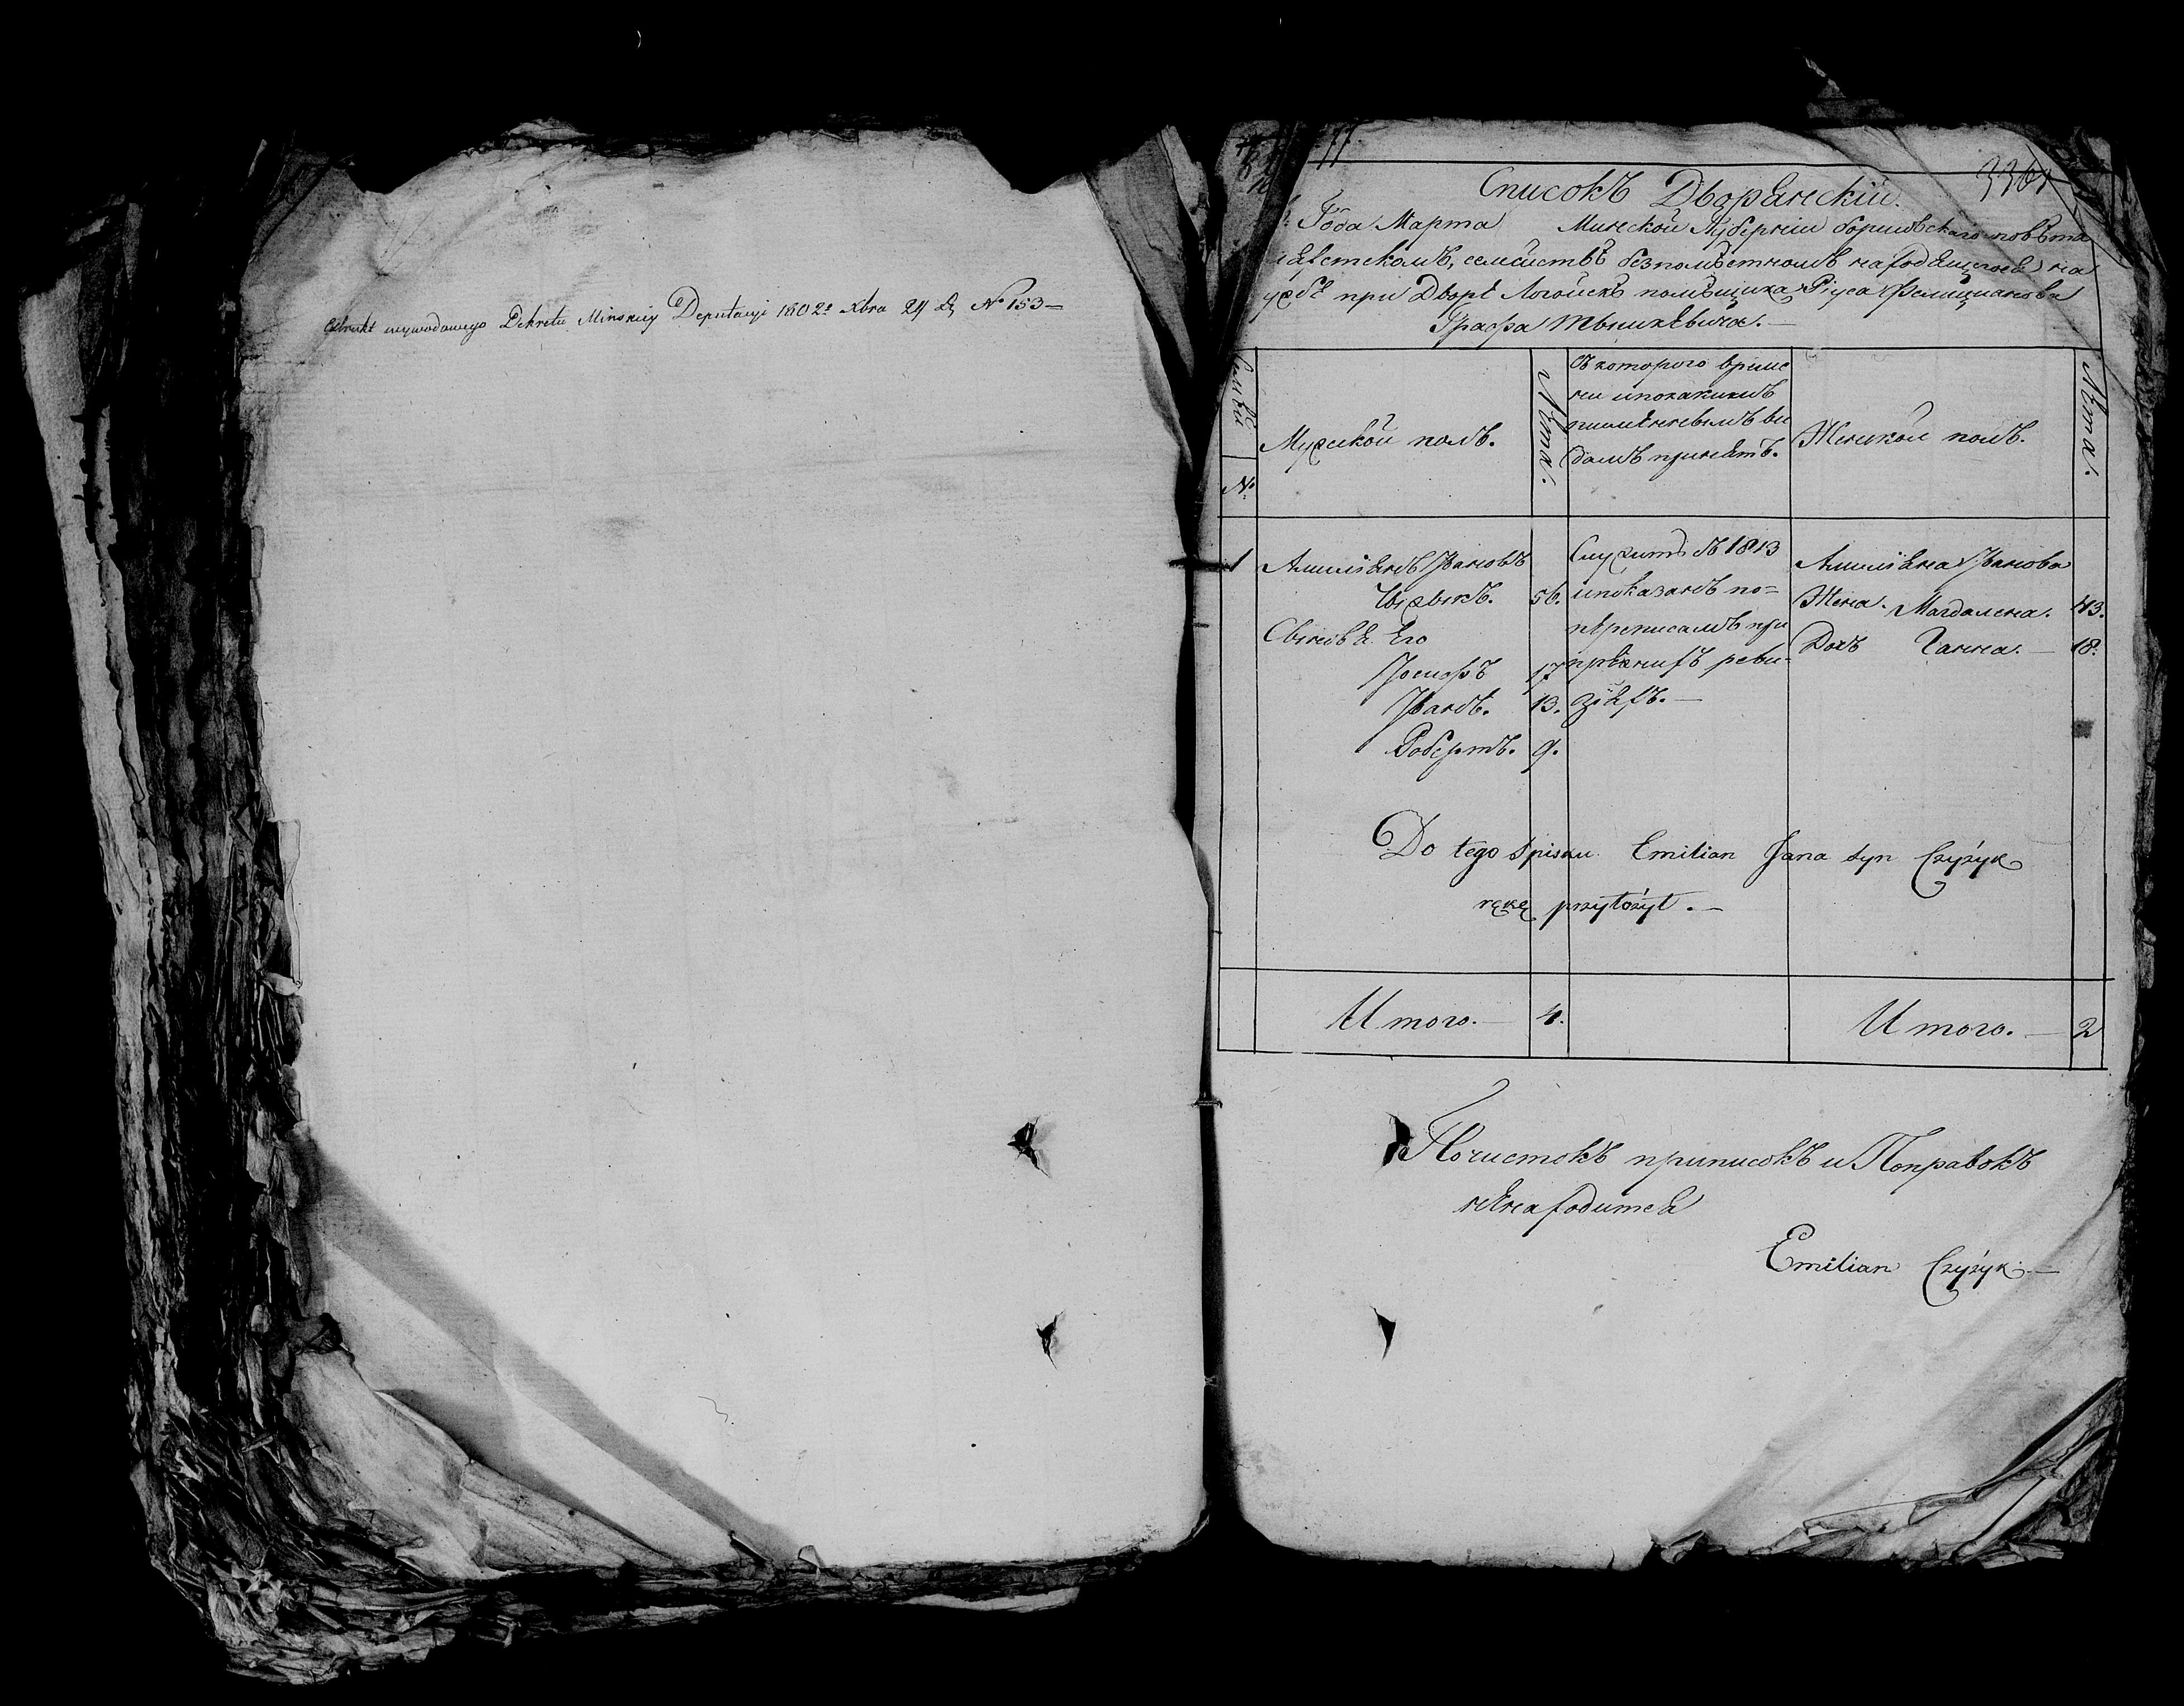 Extrakt wywodowego Dekretu Minskiey Deputacyi 1802º Xbra 24 D. No 153 =
Списокъ Дворянскій.
Года Марта Минской Губерніи борисовскаго повѣта
семействѣ безпомѣстномъ находящгося на
при Дворѣ Логойскѣ помѣщика Ріуса Фелиціанова
Графа Тышкѣвича. —
№
Мужской полъ.
Лѣта.
Съ которого време
ни и по какимъ
далъ принятъ.
Женской полъ.
Лѣта.
1
Амиліянъ Ивановъ
Чижыкъ. 56.
Сыновья Его
Іосифъ 17
Иванъ. 13.
Робертъ. 9.
Служитъ съ 1813
и показанъ по=
переписамъ при
прежнихъ реви=
зіяхъ. —
Амиліяна Иванова
Жена. Магдалена. 43.
Дочь Ганна. — 18.
Do tego spisku Emilian Jana syn Czyżyk
rękę przyłożył. —
Итого. — 4.
Итого. — 2
Почистокъ приписокъ и Поправокъ
ненаходится
Emilian Czyżyk. —